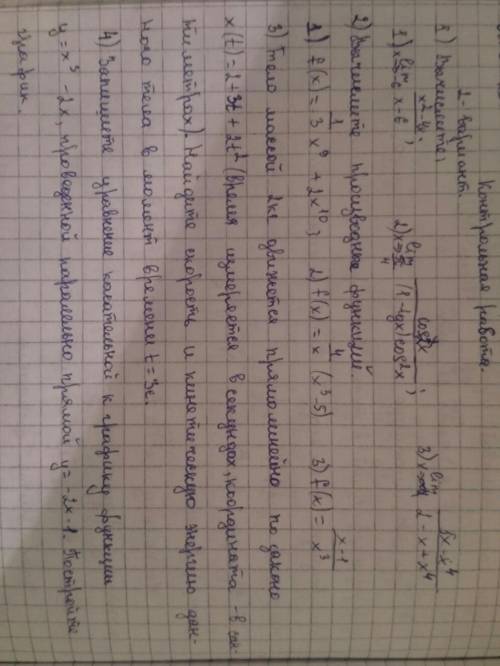 Контрольная работа.
2-Вариант.
1) Вычислите:
1) lim x→-6 x²-36 / x-6 ; 2) lim x→π/4 cos2x / (1-tgx)cos²x ; 3) lim 5x-x⁴ / 2-x+x⁴
2) Вычислите производные функций.
1) f(x) = 1/3 x⁹ + 2x¹⁰ ; 2) f(x) = x⁴ (x³-5) 3) f(x) = x-1 / x³
3) Тело массой 2кг движется прямолинейно по закону
x(t) = 2+3t+2t² (время измеряется в секундах, координата - в сан-
тиметрах). Найдите скорость и кинетическую энергию дан-
ного тела в момент времени t=3с.
4) Запишите уравнение касательной к графику функции
y=x³-2x, проведенной параллельно прямой y=-2x-1. Постройте
график.